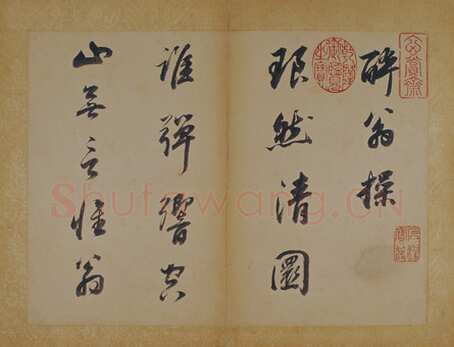 玄賞齋
醉翁操
琅然清圜
誰彈響空
山無言惟翁
Shufawang.CN